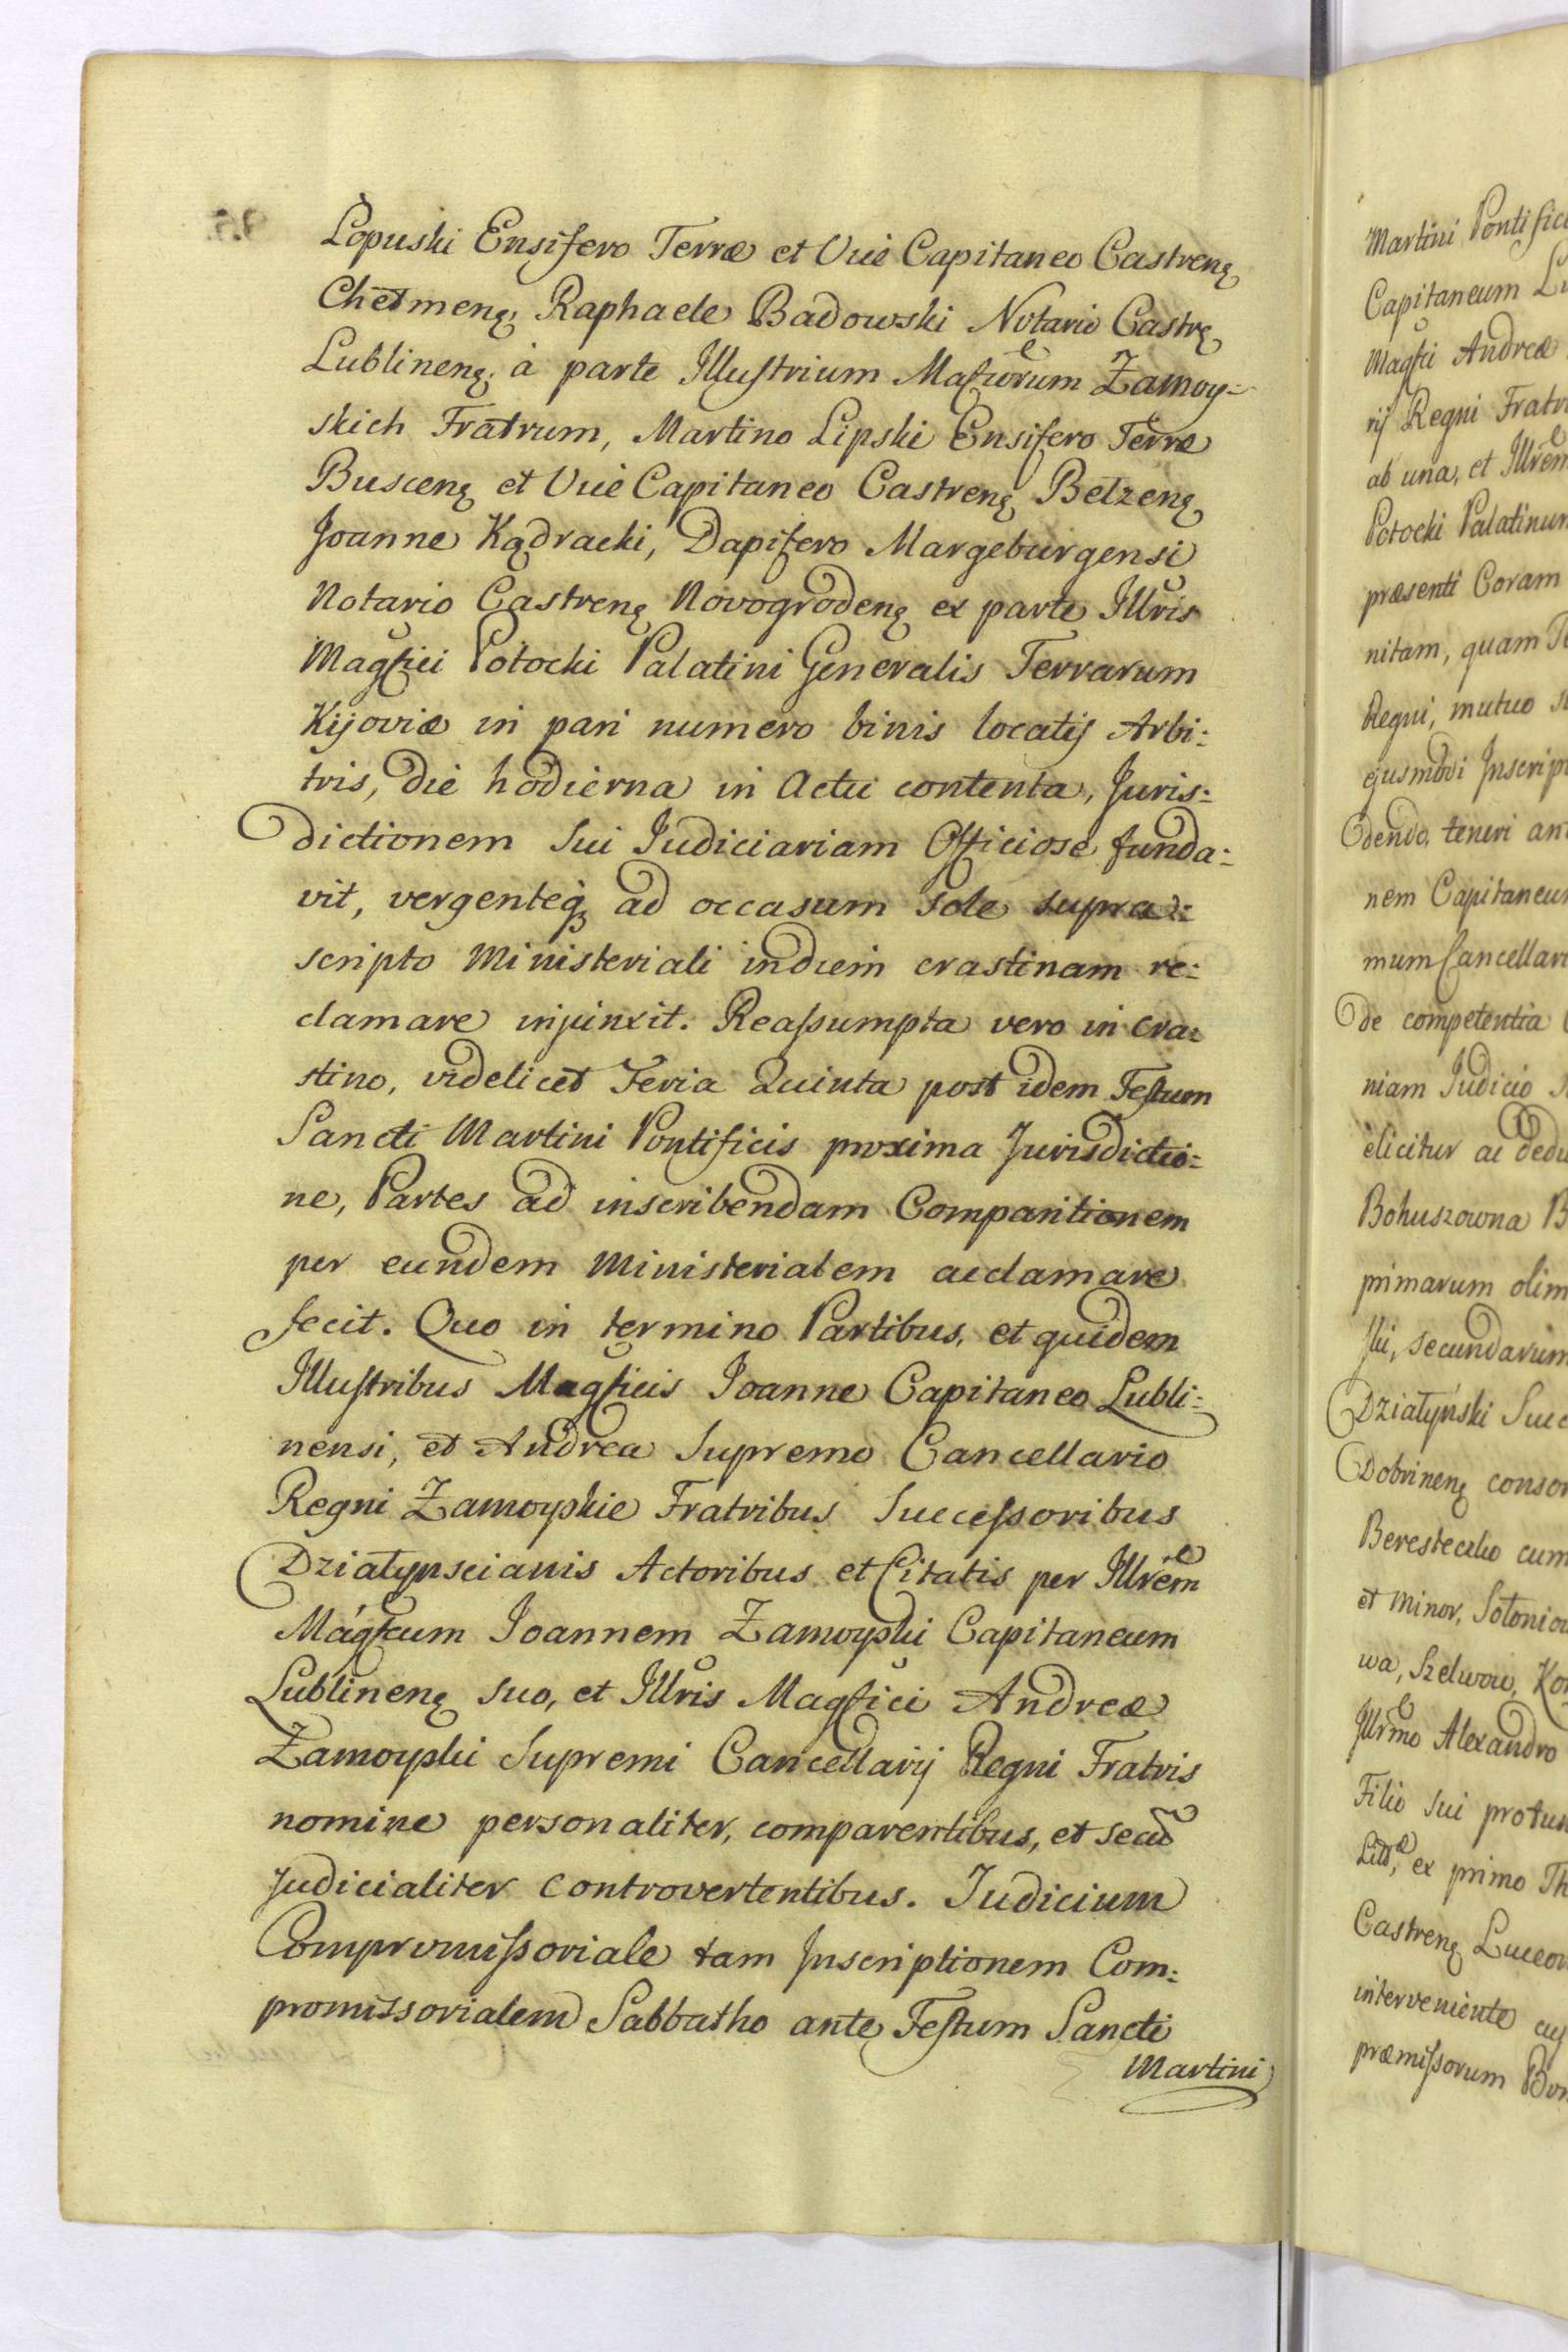 Łopuski Ensifero Terræ et Vice Capitaneo Castreng
Chełmeng, Raphaele Badowski Notario Castrg
Lublineng, à parte Illustrium Mafcorum Zamoy=
skich Fratrum, Martino Lipski Ensifero Terræ
Busceng et Vice Capitaneo Castreng Bełzeng,
Joanne Kądracki, Dapifero Margeburgensi
Notario Castreng Novogrodeng ex parte Illris
Magfici Potocki Palatini Generalis Terrarum
Kijoviæ in pari numero binis locatis Arbi=
tris, die hodierna in Actu contenta, Juris=
dictionem sui Judiciariam Officiose funda=
vit, vergenteq ad occasum sole supra=
scripto Ministeriali in diem crastinam re=
clamare injunxit. Reassumpta vero in cra=
stino, videlicet Feria Quinta post idem Festum
Sancti Martini Pontificis proxima Jurisdictio=
ne, Partes ad inscribendam Comparitionem
per eundem Ministerialem acclamare
fecit. Quo in termino Partibus, et quidem
Illustribus Magficis Joanne Capitaneo Lubli=
nensi, et Andrea Supremo Cancellario
Regni Zamoyskie Fratribus Successoribus
Działynscianis Actoribus et Citatis per Illrem
Magfcum Joannem Zamoyski Capitaneum
Lublineng suo, et Illris Magfici Andreæ
Zamoyski Supremi Cancellarij Regni Fratris
nomine personaliter, comparentibus, et secu
judicialiter controvertentibus. Judicium
Compromissoriale tam Inscriptionem Com=
promissorialem Sabbatho ante Festum Sancti
Martini
Martini Pontifici
Capitaneum Lu
Magfci Andreæ
rij Regni Fratr
ab una, et Illrem
Potocki Palatinum
præsenti Coram
nitam, quam
Regni, mutuo
ejusmodi Inscrip
dendo, teneri an
nem Capitaneum
mum Cancellari
de competentia
niam Judicio
elicitur ac dedu
Bohuszowna B
primarum olim
ski, secundarum
Działyński Succ
Dobrineng consor
Beresteczko cum
et Minor, Sołoniow
wa, Szelwow, Kor
Illrmo Alexandro
Filio sui protun
ex primo Th
Castreng Luceor
interveniente
præmissorum Bon